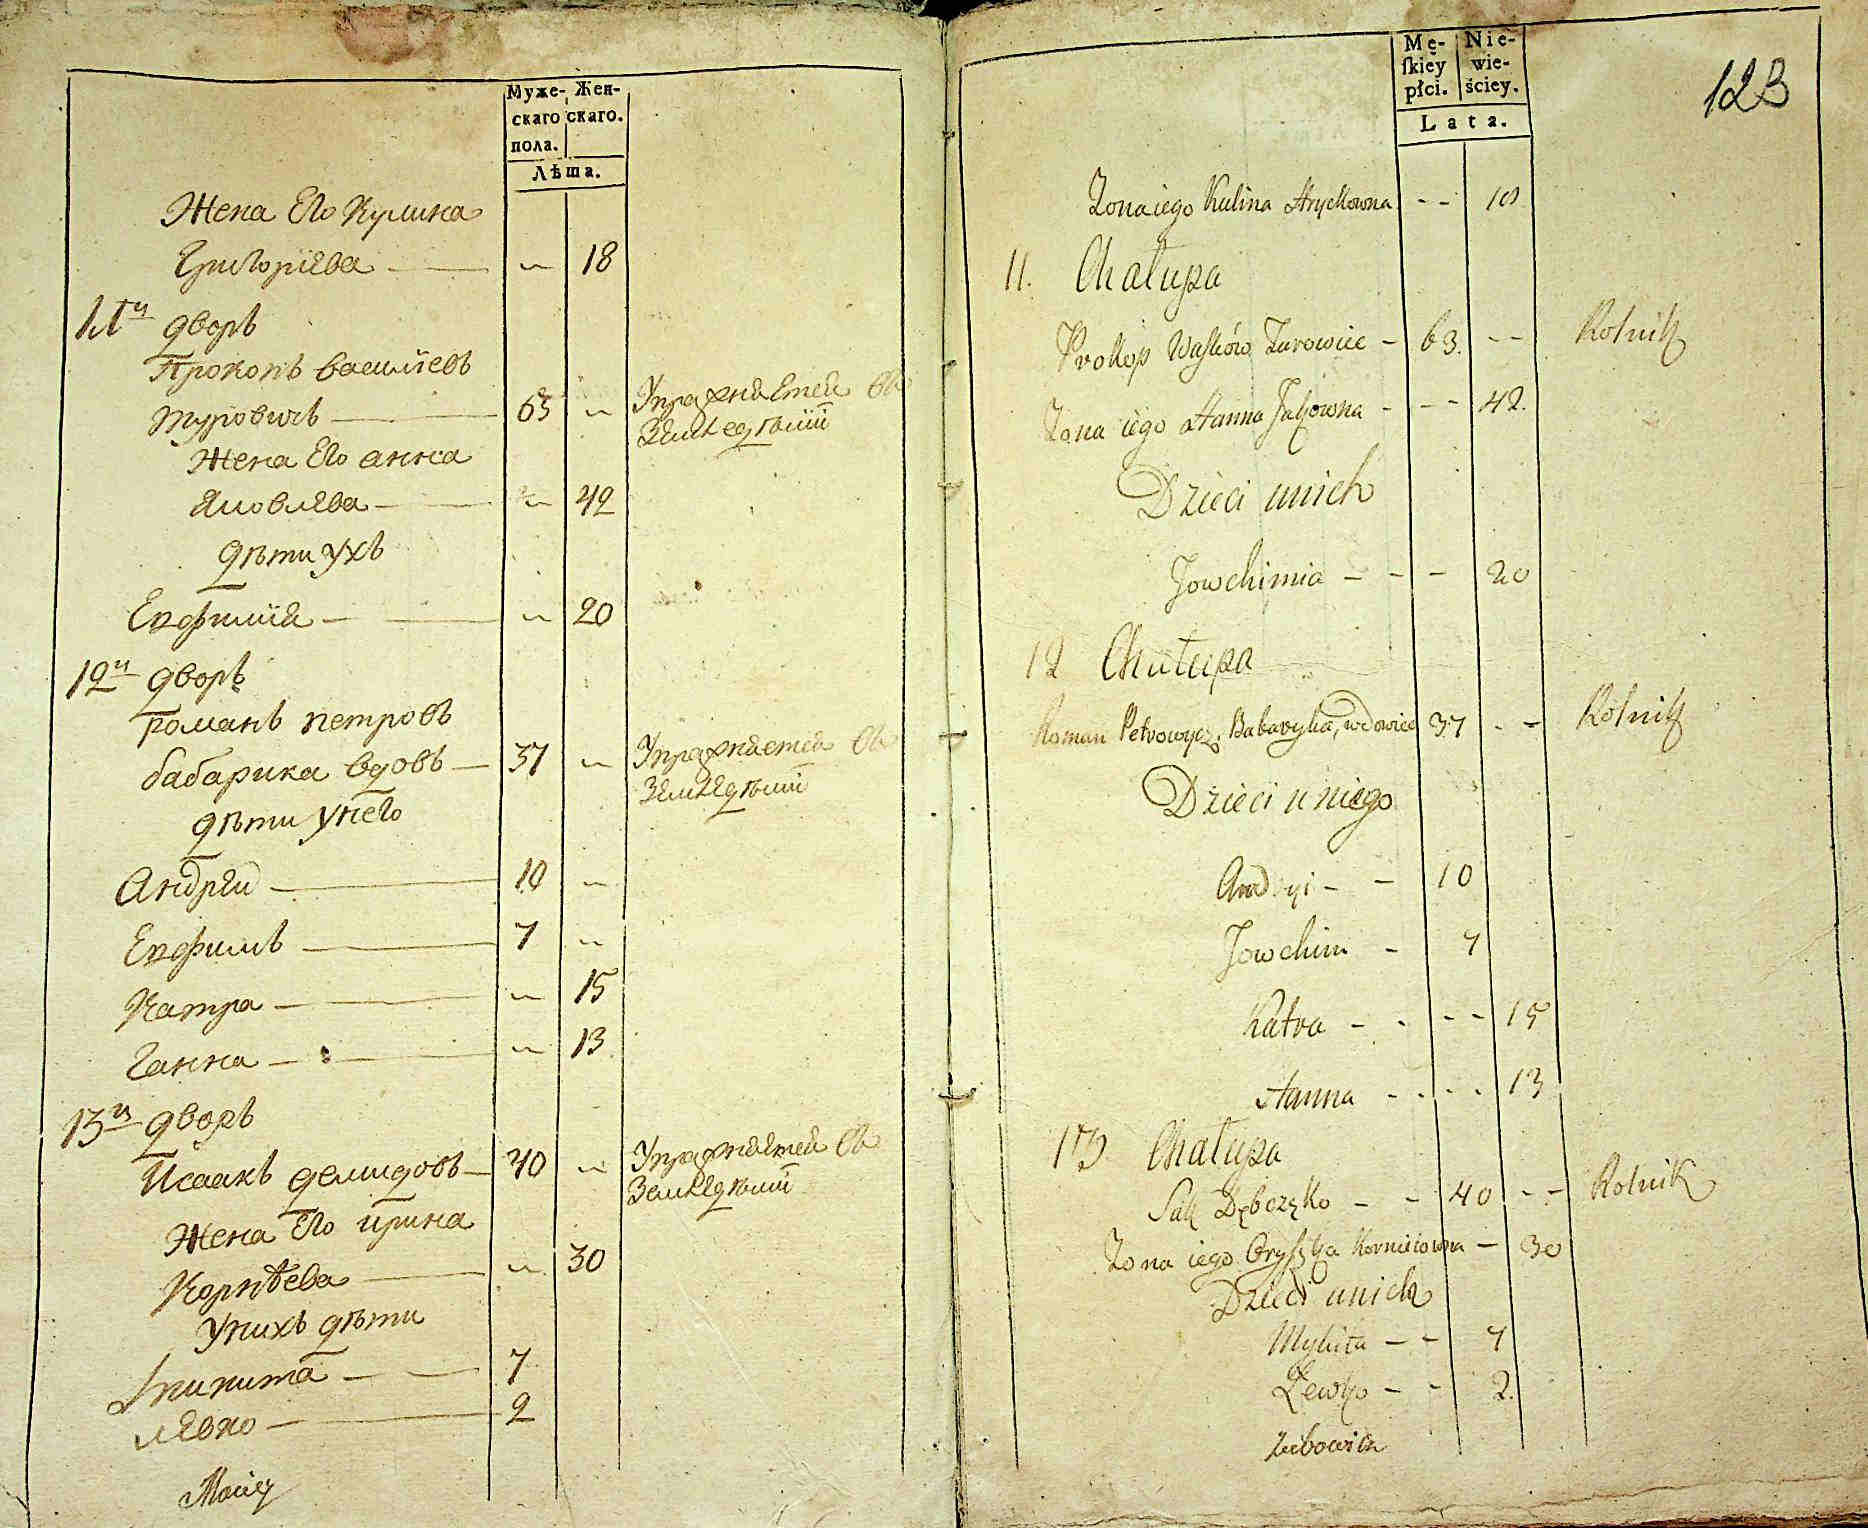 Муже- Жен-
скаго скаго.
пола.
Лѣта.
Жена Его Кулина
Григорієва — „ 18
11й дворъ
Прокопъ васильевъ
туровичъ — 63 „ Упражняется Въ
Земледѣлїи
Жена Его анна
Яковлева — „ 42
дѣти ухъ
Евфимія — „ 20
12й дворъ
романъ петровъ
бабарика вдовъ — 37 „ Упражняется Въ
Земледѣліи
дѣти унего
Андрей — 10 „
Евфимъ — 7 „
Катра — „ 15
Ганна — „ 13
13й дворъ
Исаакъ демидовъ — 40 „ Упражняется Въ
Земледѣліи
Жена Его ирина
Корнѣева — „ 30
Унихъ дѣти
Микита — — 7
левко — 2
Mę- Nie-
skiey wie-
płci. ściey.
Lata.
123
Zona iego Kulina Hryckowna - - 18
11. Chałupa
Prokop Waśków Turowicz - 63. - - Rolnik
Zona iego Hanna Jakowna - - - 42.
Dzieci unich
Jowchimia - - - 20
12 Chałupa
Roman Petrowycz Babaryka, wdowiec 37 - - Rolnik
Dzieci u niego
Andryi - - 10
Jowchim - 7
Katra - - - - 15
Hanna - - - - 13
13 Chałupa
Sak - - 40 - - Rolnik
Zona iego Oryszka Korniiowna - 30
Dzieci unich
Mykita - - 7
Lewko - - 2.